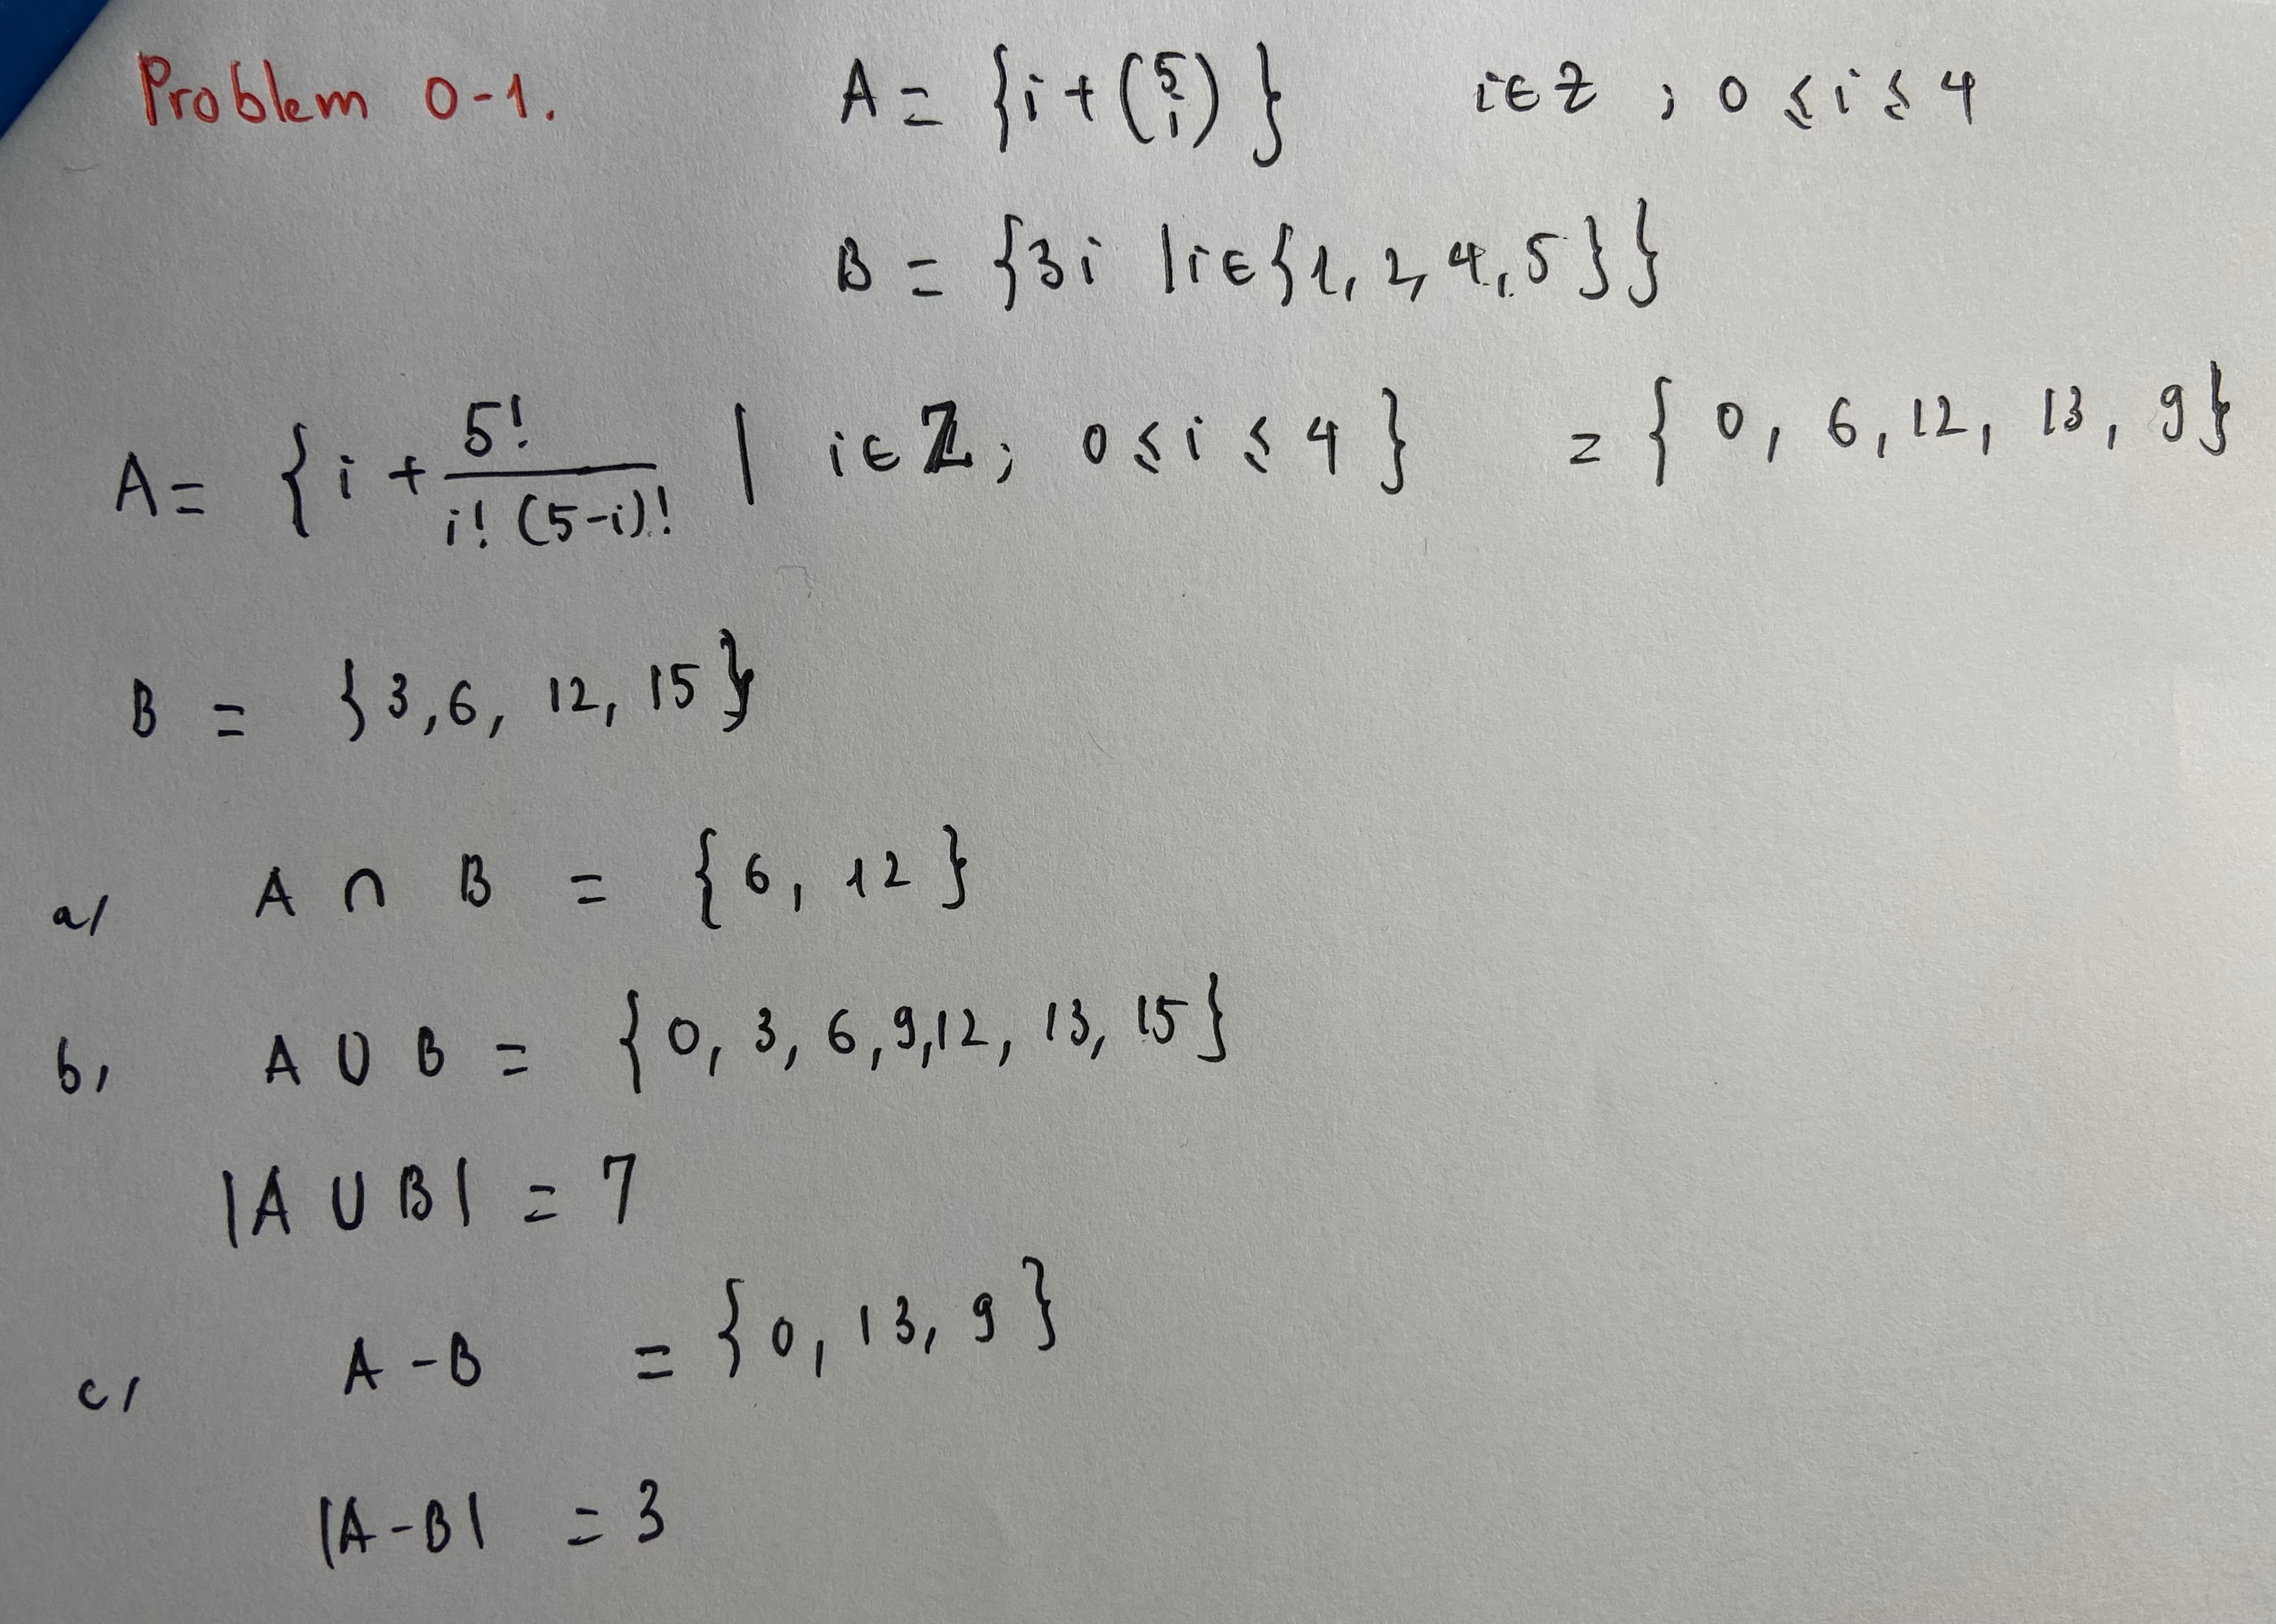 Problem 0-1. A = {i + (5 i)} i ∈ Z ; 0 ≤ i ≤ 4
B = {3i | i ∈ {1, 2, 4, 5}}
A = {i + 5! / i! (5-i)! | i ∈ ℤ ; 0 ≤ i ≤ 4} = {0, 6, 12, 13, 9}
B = {3, 6, 12, 15}
a/ A ∩ B = {6, 12}
b, A ∪ B = {0, 3, 6, 9, 12, 13, 15}
|A ∪ B| = 7
c, A - B = {0, 13, 9}
|A - B| = 3